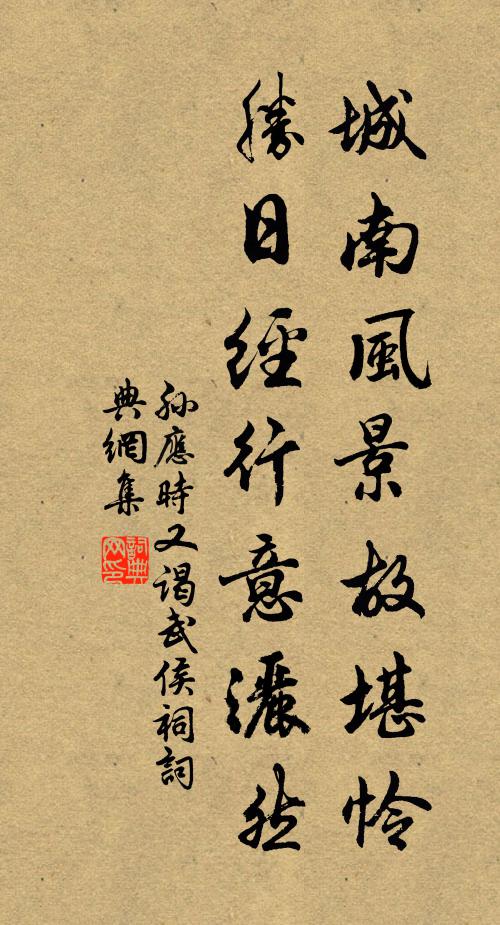 城南風景故堪怜
勝日經行意灑然
孙應時又謁武侯祠詞
典網集
詞典网印